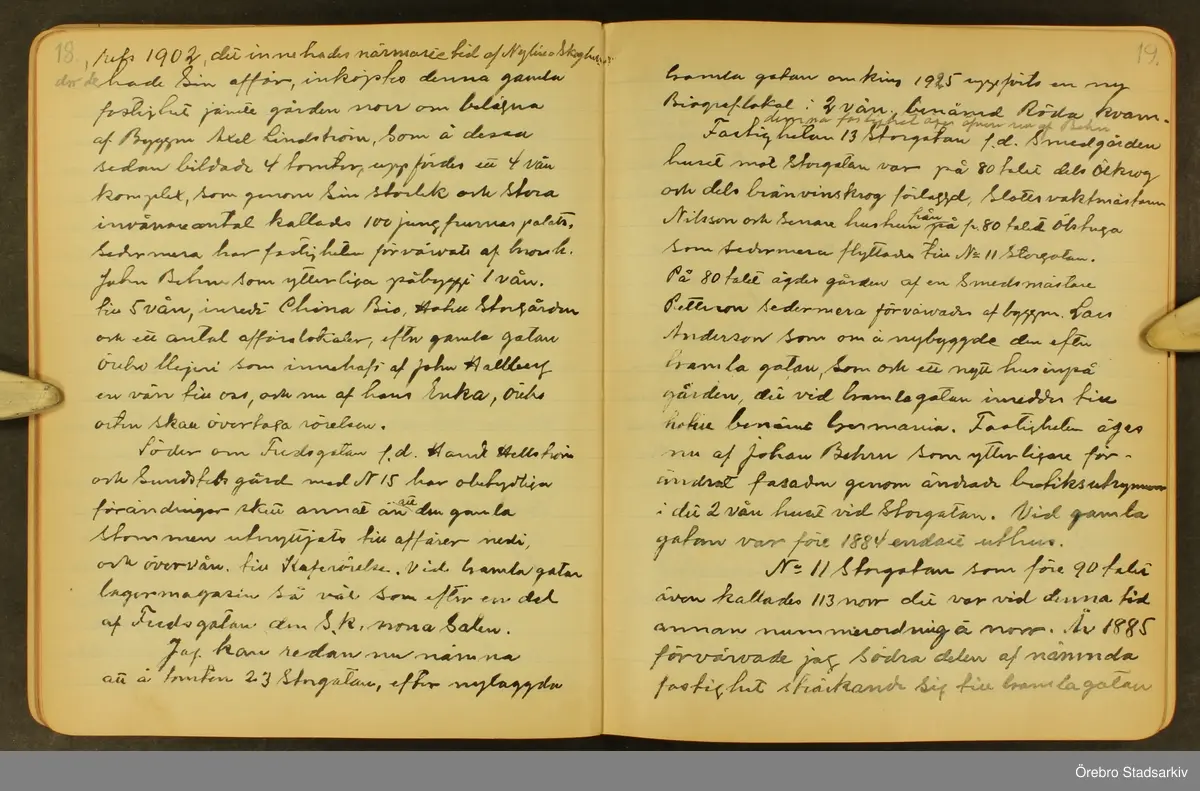 18.
1902, det innehades närmaste tid af Nylin o
hade sin affär, inköpttes denna gamla
fastighet jämte gården norr om belägna
af Byggm Axel Lindström, som å dessa
sedan bildade 4 tomter, uppfördes ett 4 vån
komplex, som genom sin storlek och stora
invånareantal kallades 100 jungfrurnas palats.
Sedermera har fastigheten förvärvats af
John Behrn som ytterliga påbyggt 1 vån.
till 5 vån, inredt China Bio, Hotell Storgården
och ett antal affärslokaler, efter gamla gatan
Örebro Mejeri som innehaft af John Hallberg
en vän till oss, och nu af hans Enka, Örebro
orten skall övertaga rörelsen.
Söder om Fredsgatan f.d. Handl Hellström
och Sundstedts gård med N 15 har obetydliga
förändringar skett annat än att den gamla
stommen utnyttjats till affärer nedi,
och övervån. till Kaferörelse. Vid gamla gatan
lagermagasin så väl som efter en del
af Fredsgatan den S.k. norra Salen.
Jag kan redan nu nämna
att å tomten 23 Storgatan, efter nybyggda
19.
gamla gatan omkring 1925 uppförts en ny
Biograflokal i 2 vån. benämd Röda kvarn.
denna fastighet äges även nu af Behrn
Fastigheten 13 Storgatan f.d. Smedgården
huset mot Storgatan var på 80 talet dels Ölkrog
och dels bränvinskrog förlaggd, Slottsvaktmästaren
Nilsson och senare från på f. 80 talet Ölstuga
som sedermera flyttades till No 11 Storgatan.
På 80 talet ägdes gården af en Smedsmästare
Petterson sedermera förvärvades af byggm. Lars
Anderson som om å nybyggde den efter
gamla gatan, som och ett nytt hus inpå
gården, det vid gamla gatan inreddes till
hotell benämt Germania. Fastigheten äges
nu af Johan Behrn som ytterligare för-
ändrat fasaden genom ändrade butiksutrymmen
i det 2 vån huset vid Storgatan. Vid gamla
gatan var före 1884 endast uthus.
No 11 Storgatan som före 90 talet
även kallades 113 norr det var vid denna tid
annan nummerordning å norr. År 1885
förvärvade jag södra delen af nämnda
fastighet sträckande sig till gamla gatan
Örebro Stadsarkiv